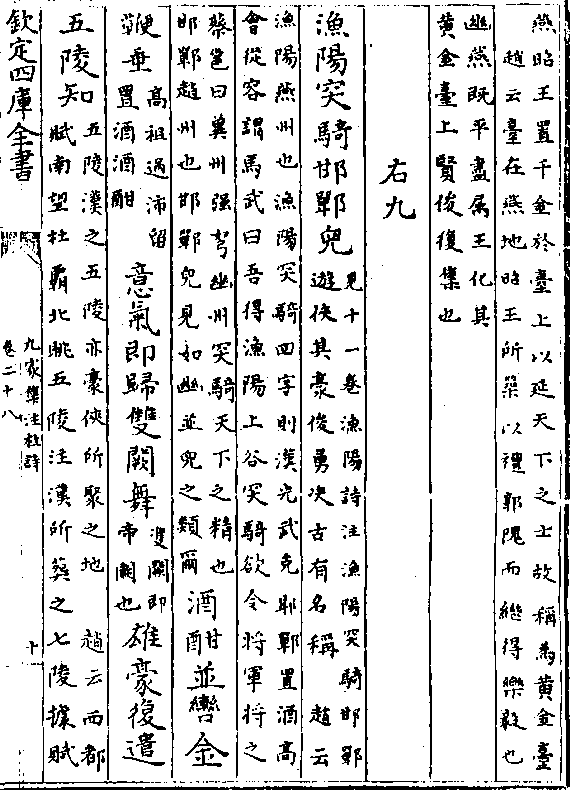 燕昭王置千金於臺上以延天下之士故稱為黃金臺
趙云臺在燕地昭王所築以禮郭隗而繼得樂毅也
幽燕既平盡属王化其
黄金臺上賢俊復集也
右九
漁陽突騎邯鄲兒
見十一卷漁陽詩注漁陽突騎邯鄲
遊俠其豪俊勇决古有名稱 趙云
漁陽燕州也漁陽突騎四字則漢光武克邯鄲置酒高
會從容謂馬武曰吾得漁陽上谷突騎欲令将軍将之
蔡邕曰冀州强弩幽州突騎天下之精也
邯鄲趙州也邯鄲兒見如幽並兒之類爾
酒酣並轡金
鞭垂
高祖過沛留
置酒酒酣
意氣即歸雙闕舞
雙闕即
帝闕也
雄豪復遣
五陵知
五陵漢之五陵亦豪俠所聚之地 趙云西都
賦南望杜霸北眺五陵注漢所葬之七陵據賦
欽定四庫全書
九家集注杜詩
卷二十八
十